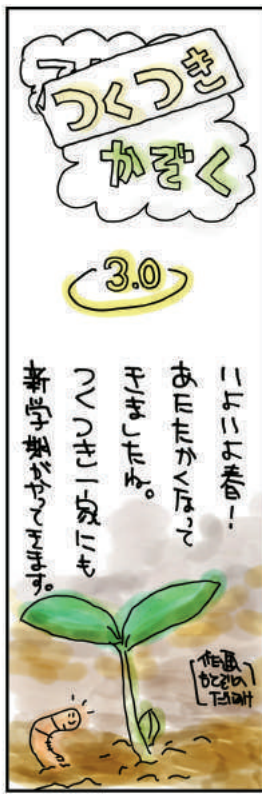 つくつき
かぞく
3.0
いよいよ春！
あたたかくなって
きましたね。
つくつき一家にも
新学期がやってきます。
作画